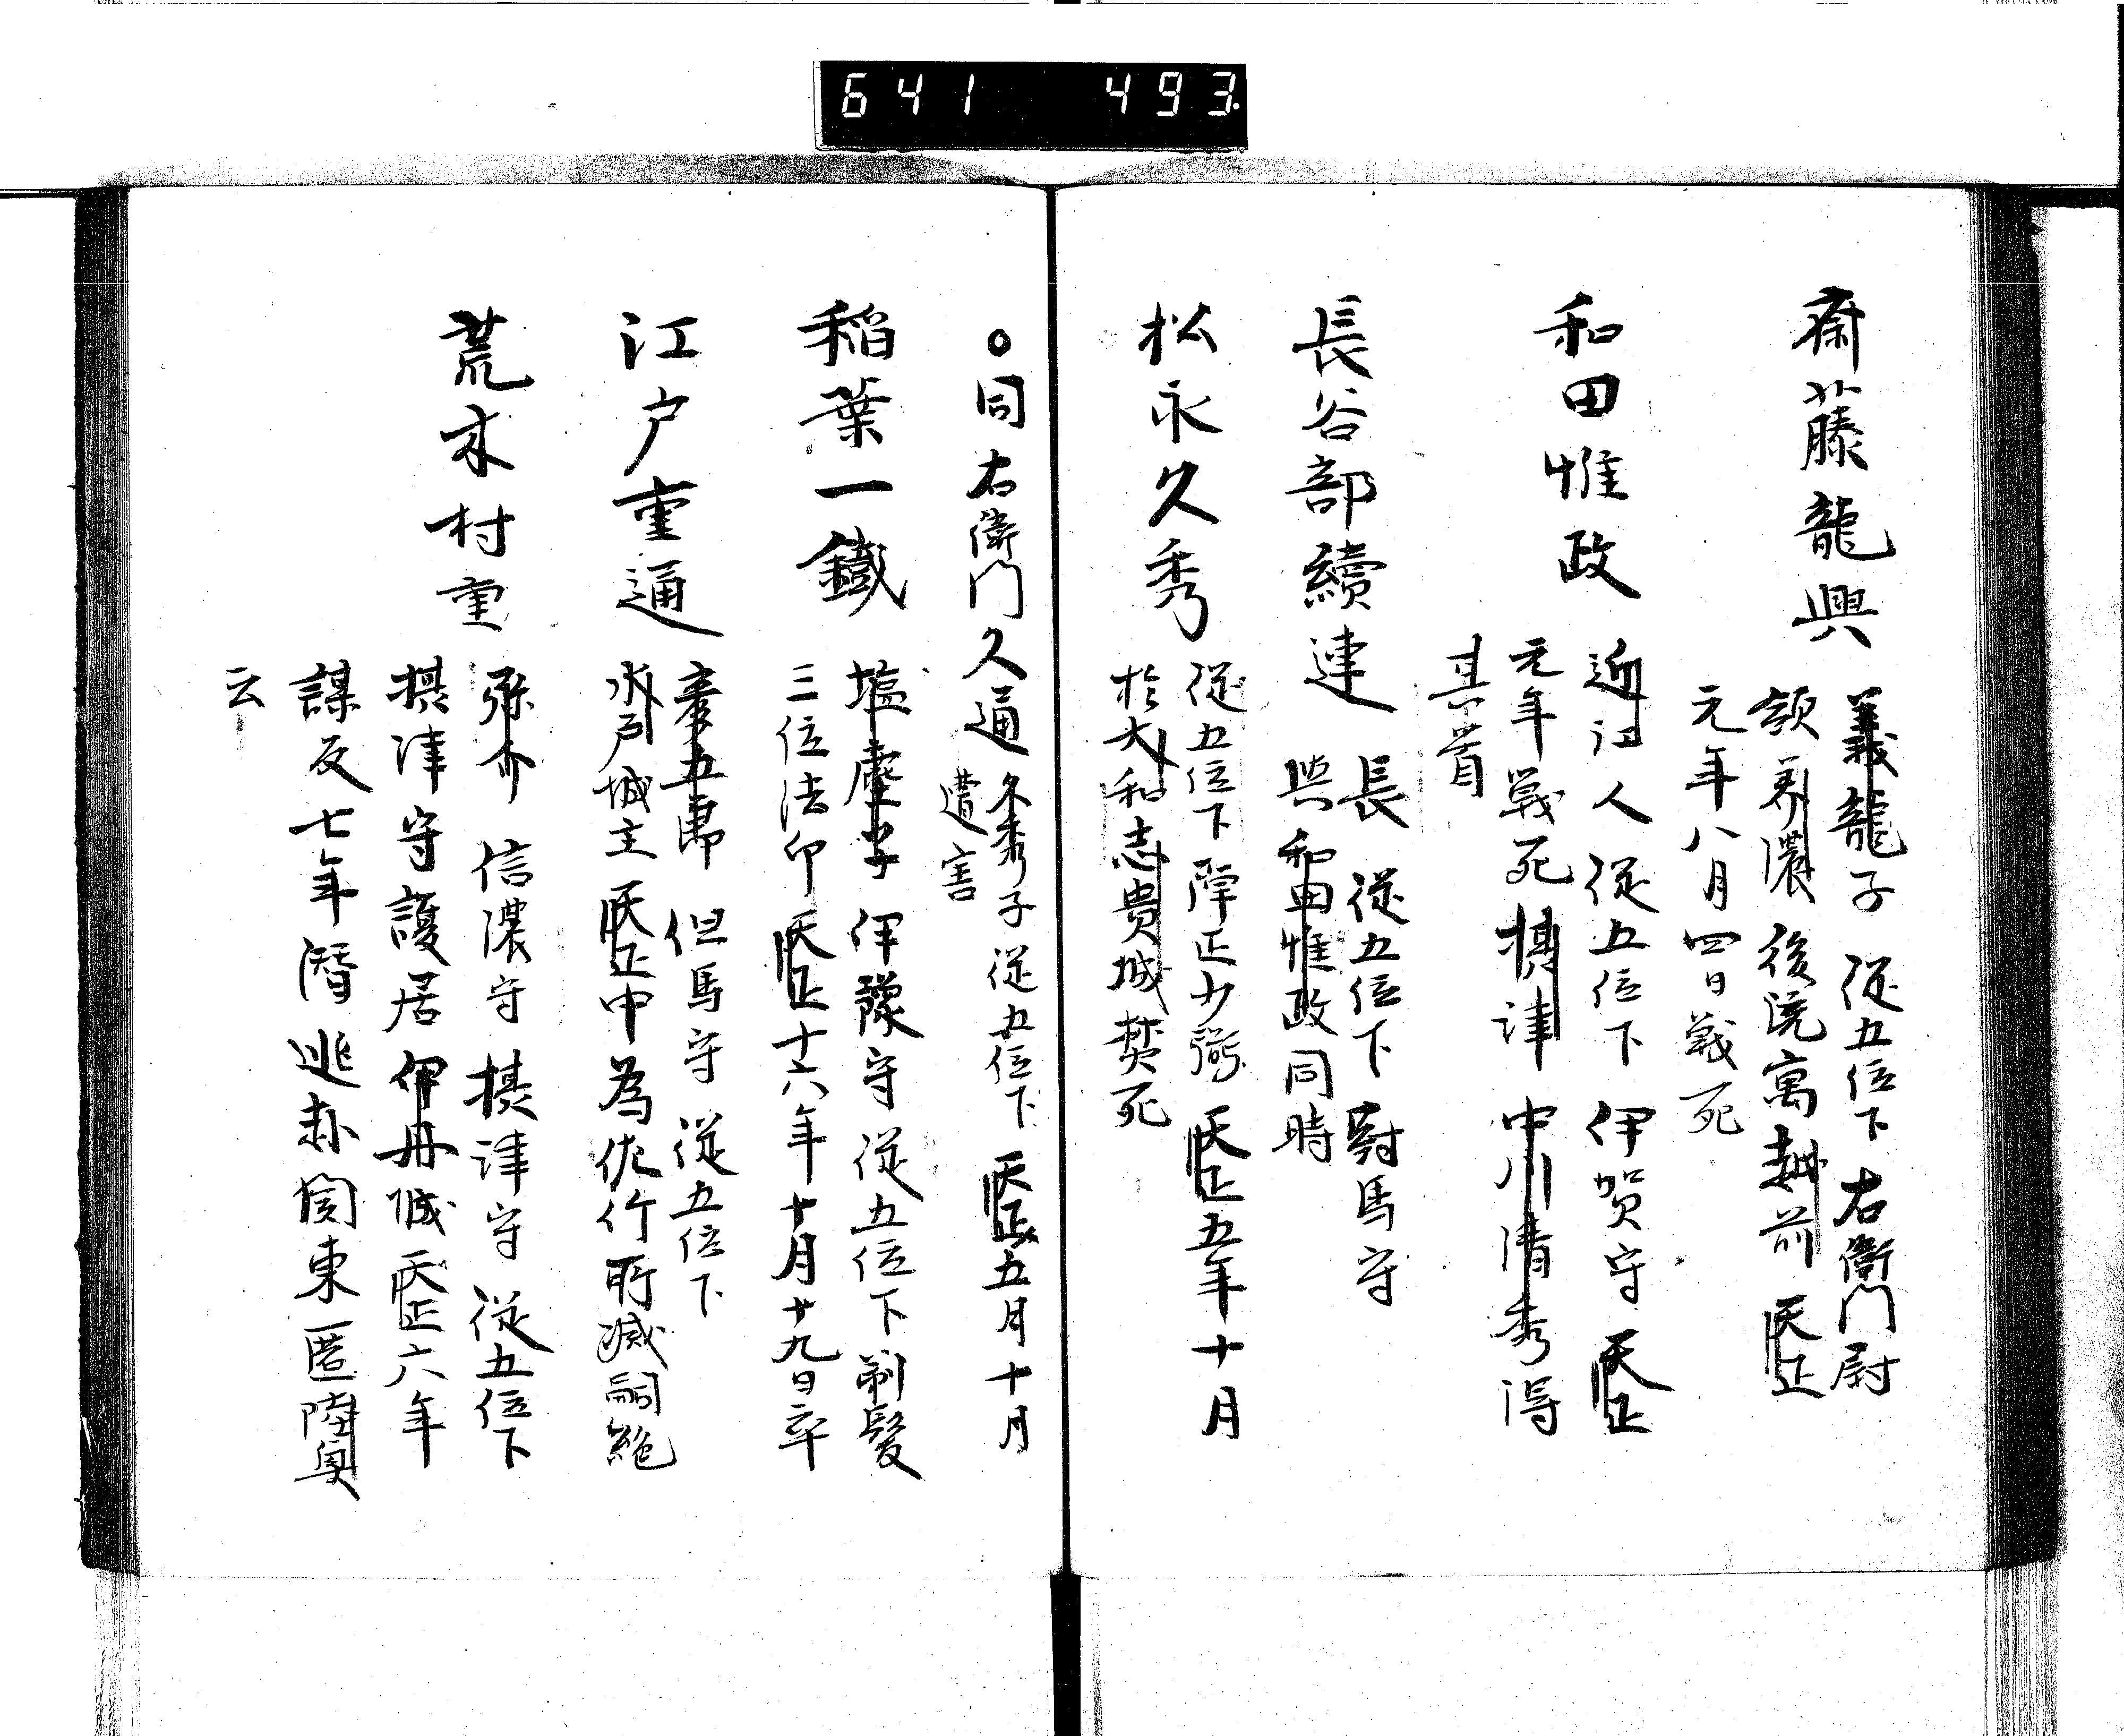 641 493
斎藤龍興
義龍子 従五位下 右衛門尉
領美濃 後流寓越前 天正
元年八月四日戦死
和田惟政
近江人 従五位下 伊賀守 天正
元年戦死摂津 中川清秀得
其首
長谷部續連
長 従五位下 對馬守
與和田惟政同時
松永久秀
従五位下 弾正少弼 天正五年十月
於大和志貴城焚死
○同右衛門久通
久秀子 従五位下 天正五月十月
遭害
稲葉一鐵
塩塵子 伊豫守 従五位下 剃髪
三位法印 天正十六年十月十九日卒
江戸重通
彦五郎 但馬守 従五位下
水戸城主 天正中為佐竹所滅嗣絶
荒木村重
弥介 信濃守 摂津守 従五位下
摂津守護居伊丹城 天正六年
謀反七年潜逃赴関東匿陸奥
云